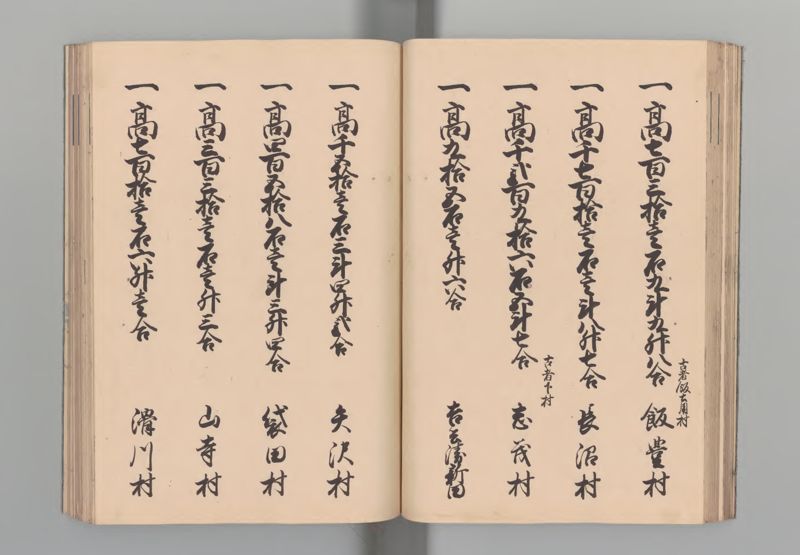 一高七百三拾壱石九斗九升八合 古者飯玉用村 飯豊村
一高千七百拾壱石壱斗八升七合 長沼村
一高千弐百九拾六石五斗七合 古者下村 志茂村
一高九拾五石壱升六合 新田
一高千五拾壱石三斗四升弐合 矢沢村
一高四百五拾八石壱斗三升四合 袋田村
一高三百三拾壱石壱升三合 山寺村
一高七百拾壱石六升壱合 滑川村